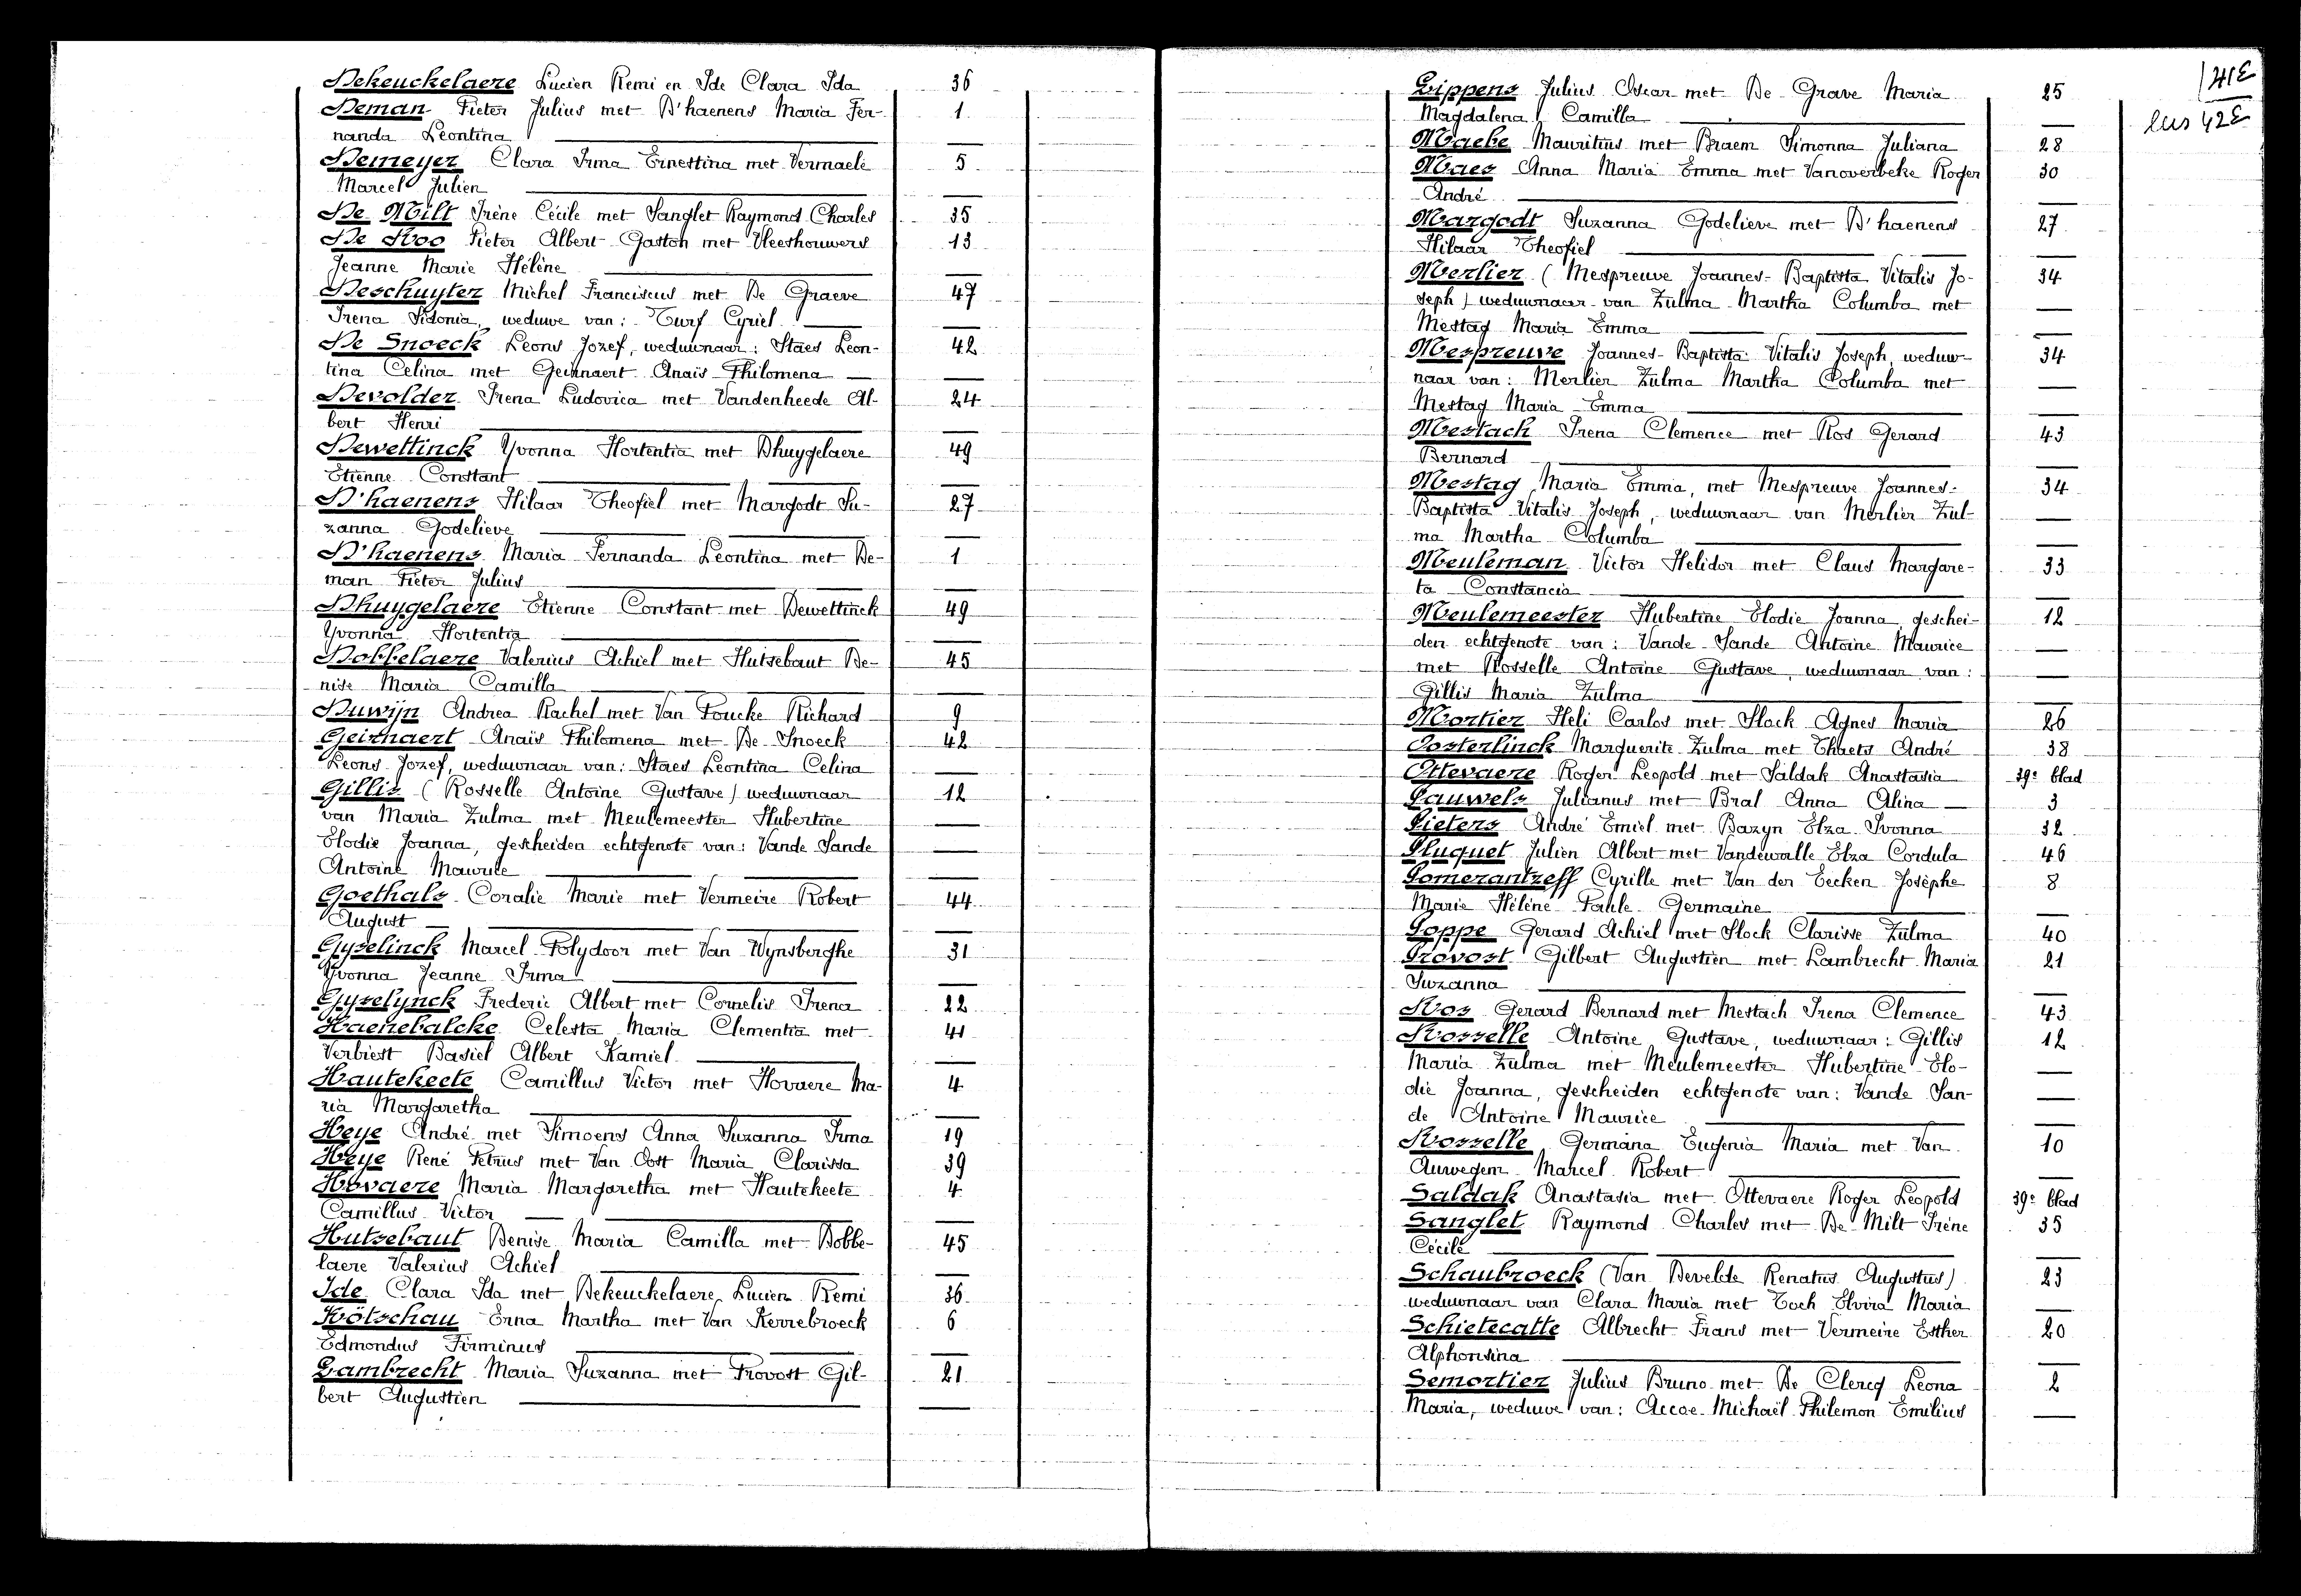 Dekeuckelaere Lucien Remi en Ide Clara Ida 36
Deman Pieter Julius met D'haenens Maria Fer- 1
nanda Leontina
Demeyer Clara Irma Ernestina met Vermaele 5
Marcel Julien
De Milt Irène Cécile met Sanglet Raymond Charles 35
De Roo Pieter Albert Gaston met Vleeshouwers 13
Jeanne Marie Hélène
Deschuyter Michel Franciscus met De Graeve 47
Irena Sidonia, weduwe van: Turf Cyriel
De Snoeck Leons Jozef, weduwnaar: Staes Leon- 42
tina Celina met Geirnaert Anaïs Philomena
Devolder Irena Ludovica met Vandenheede Al- 24
bert Henri
Dewettinck Yvonna Hortentia met Dhuygelaere 49
Etienne Constant
D'haenens Hilaar Theofiel met Margodt Su- 27
zanna Godelieve
D'haenens Maria Fernanda Leontina met De- 1
man Pieter Julius
Dhuygelaere Etienne Constant met Dewettinck 49
Yvonna Hortentia
Dobbelaere Valerius Achiel met Hutsebaut De- 45
nise Maria Camilla
Duwijn Andrea Rachel met Van Poucke Richard 9
Geirnaert Anaïs Philomena met De Snoeck 42
Leons Jozef, weduwnaar van: Staes Leontina Celina
Gillis (Rosselle Antoine Gustave) weduwnaar 12
van Maria Zulma met Meulemeester Hubertine
Elodie Joanna, gescheiden echtgenote van: Vande Sande
Antoine Maurice
Goethals Coralie Marie met Vermeire Robert 44
August
Gyselinck Marcel Polydoor met Van Wynsberghe 31
Yvonna Jeanne Irma
Gyselynck Frederic Albert met Cornelis Irena 22
Haenebalcke Celesta Maria Clementia met 41
Verbiest Basiel Albert Kamiel
Hautekeete Camillus Victor met Hovaere Ma- 4
ria Margaretha
Heye André met Simoens Anna Suzanna Irma 19
Heye René Petrus met Van Oost Maria Clarissa 39
Hovaere Maria Margaretha met Hautekeete 4
Camillus Victor
Hutsebaut Denise Maria Camilla met Dobbe- 45
laere Valerius Achiel
Ide Clara Ida met Dekeuckelaere Lucien Remi 36
Kötschau Erna Martha met Van Kerrebroeck 6
Edmondus Firminus
Lambrecht Maria Suzanna met Provost Gil- 21
bert Augustien
Lippens Julius Oscar met De Grave Maria 25
Magdalena Camilla
Maebe Mauritius met Braem Simonna Juliana 28
Maes Anna Maria Emma met Vanoverbeke Roger 30
André
Margodt Suzanna Godelieve met D'haenens 27
Hilaar Theofiel
Merlier (Mespreuve Joannes-Baptista Vitalis Jo- 34
seph) weduwnaar van Zulma Martha Columba met
Mestag Maria Emma
Mespreuve Joannes-Baptista Vitalis Joseph, weduw- 34
naar van: Merlier Zulma Martha Columba met
Mestag Maria Emma
Mestach Irena Clemence met Ros Gerard 43
Bernard
Mestag Maria Emma, met Mespreuve Joannes- 34
Baptista Vitalis Joseph, weduwnaar van Merlier Zul-
ma Martha Columba
Meuleman Victor Helidor met Claus Margare- 33
ta Constancia
Meulemeester Hubertine Elodie Joanna, geschei- 12
den echtgenote van: Vande Sande Antoine Maurice
met Rosselle Antoine Gustave, weduwnaar van:
Gillis Maria Zulma
Mortier Heli Carlos met Slock Agnes Maria 26
Oosterlinck Marguerite Zulma met Thaets André 38
Ottevaere Roger Leopold met Saldak Anastasia 39e blad
Pauwels Julianus met Bral Anna Alina 3
Pieters André Emiel met Bazyn Elza Ivonna 32
Pluquet Julien Albert met Vandewalle Elza Cordula 46
Pomerantzeff Cyrille met Van der Eecken Josèphe 8
Marie Hélène Paule Germaine
Poppe Gerard Achiel met Slock Clarisse Zulma 40
Provost Gilbert Augustien met Lambrecht Maria 21
Suzanna
Ros Gerard Bernard met Mestach Irena Clemence 43
Rosselle Antoine Gustave, weduwnaar: Gillis 12
Maria Zulma met Meulemeester Hubertine Elo-
die Joanna, gescheiden echtgenote van: Vande San-
de Antoine Maurice
Rosselle Germana Eugenia Maria met Van 10
Auwegem Marcel Robert
Saldak Anastasia met Ottevaere Roger Leopold 39e blad
Sanglet Raymond Charles met De Milt Irène 35
Cécile
Schaubroeck (Van Develde Renatus Augustus) 23
weduwnaar van Clara Maria met Toch Elvira Maria
Schietecatte Albrecht Frans met Vermeire Esther 20
Alphonsina
Semortier Julius Bruno met De Clercq Leona 2
Maria, weduwe van: Accoe Michaël Philemon Emilius
41E
42E